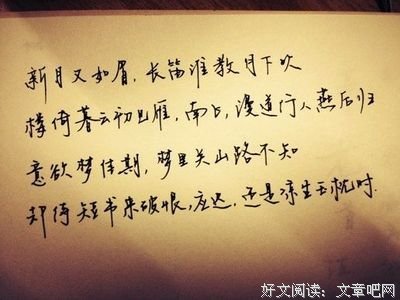 新月又如眉，长笛谁教月下吹
楼倚暮云初见雁，南飞，漫道行人雁后归
意欲梦佳期，梦里关山路不知
却待短书来破恨，应迟，还是凉生玉枕时.
好文阅读：文章吧网